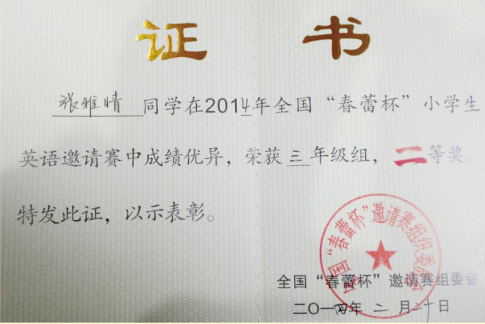 证 书
张雅晴 同学在2014年全国“春蕾杯”小学生
英语邀请赛中成绩优异，荣获三年级组，二等奖。
特发此证，以示表彰。
全国“春蕾杯”邀请赛组织委员会
全国“春蕾杯”邀请赛组委会
二〇一四年二月二十日